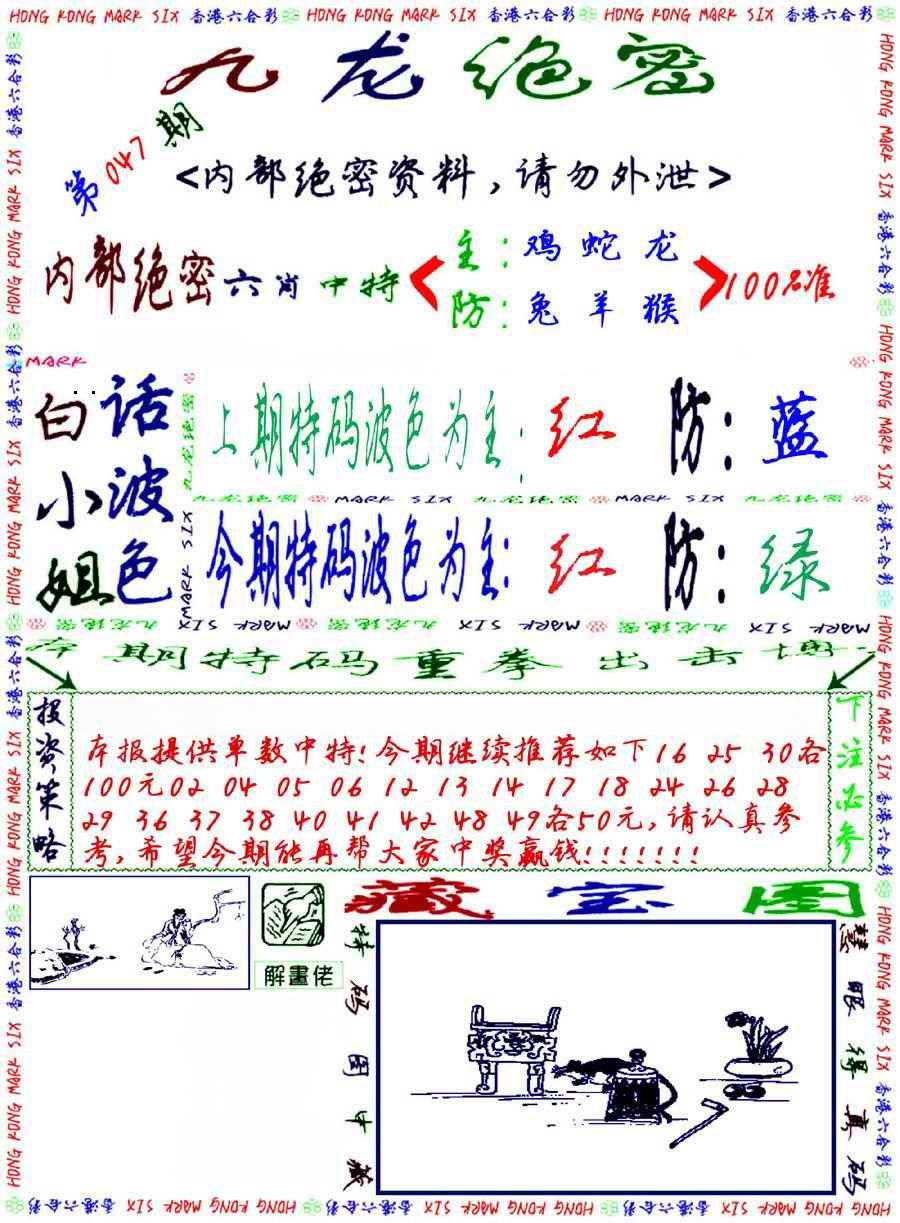 HONG KONG MARK SIX 香港六合彩 HONG KONG MARK SIX 香港六合彩 HONG KONG MARK SIX 香港六合彩
九龙绝密
第047期
<内部绝密资料,请勿外泄>
内部绝密六肖中特
主:鸡蛇龙
防:兔羊猴
100%准
MARK
白话
小波
姐色
上期特码波色为主:红 防:蓝
九龙绝密 MARK SIX 九龙绝密 MARK SIX 九龙绝密
今期特码波色为主:红 防:绿
九龙绝密 MARK SIX 九龙绝密 MARK SIX 九龙绝密 MARK SIX
本期特码重拳出击博
投资策略
本报提供单数中特!今期继续推荐如下16 25 30各
100元02 04 05 06 12 13 14 17 18 24 26 28
29 36 37 38 40 41 42 48 49各50元,请认真参
考,希望今期能再帮大家中奖赢钱!!!!!!!
下注必参
解畫佬
藏宝图
特码图中藏
慧眼得真码
HONG KONG MARK SIX 香港六合彩 HONG KONG MARK SIX 香港六合彩 HONG KONG MARK SIX 香港六合彩